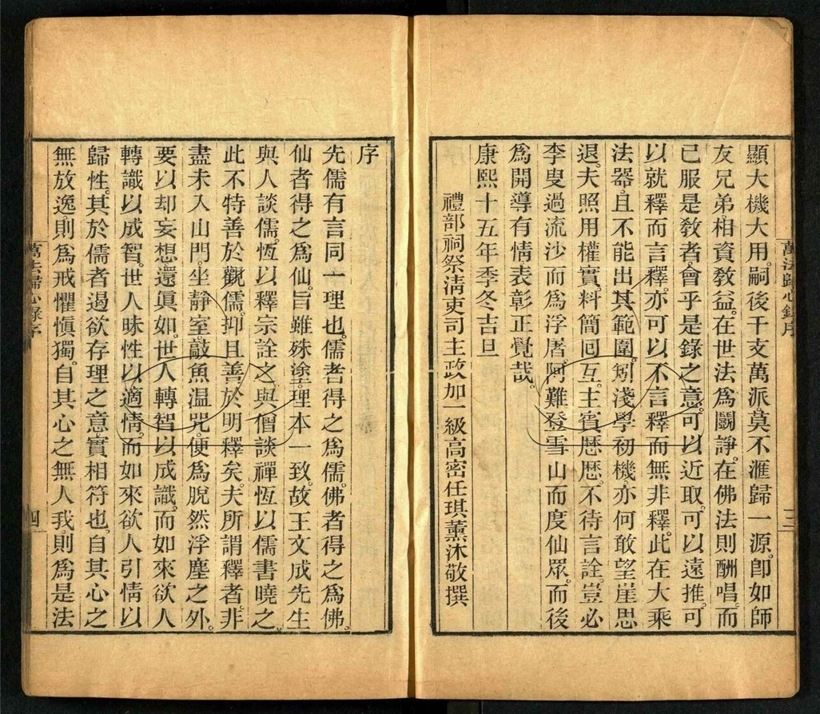 顯大機大用。嗣後千支萬派莫不滙歸一源。卽如師
友兄弟。相資敎益。在世法爲鬭諍。在佛法則酬唱。而
己服是敎者。會乎是錄之意。可以近取。可以遠推。可
以就釋而言釋。亦可以不言釋而無非釋。此在大乘
法器。且不能出其範圍。矧淺學初機。亦何敢望崖思
退。夫照用權實。料簡回互。主賓歷歷。不待言詮。豈必
李叟過流沙而爲浮屠。阿難登雪山而度仙眾。而後
爲開導有情。表彰正覺哉。
康熙十五年季冬吉旦
禮部祠祭清吏司主政加一級高密任琪薰沐敬撰
萬法歸心錄序
三
序
先儒有言。同一理也。儒者得之爲儒。佛者得之爲佛。
仙者得之爲仙。旨雖殊塗。理本一致。故王文成先生
與人談儒。恆以釋宗詮之。與僧談禪。恆以儒書曉之。
此不特善於觀儒。抑且善於明釋矣。夫所謂釋者。非
盡未入山門。坐靜室。敲魚溫咒。便爲脫然浮塵之外。
要以却妄想。還眞如。世人轉智以成識。而如來欲人
轉識以成智。世人昧性以適情。而如來欲人引情以
歸性。其於儒者遏欲存理之意。實相符也。自其心之
無放逸。則爲戒懼愼獨。自其心之無人我。則爲是法
萬法歸心錄序
四